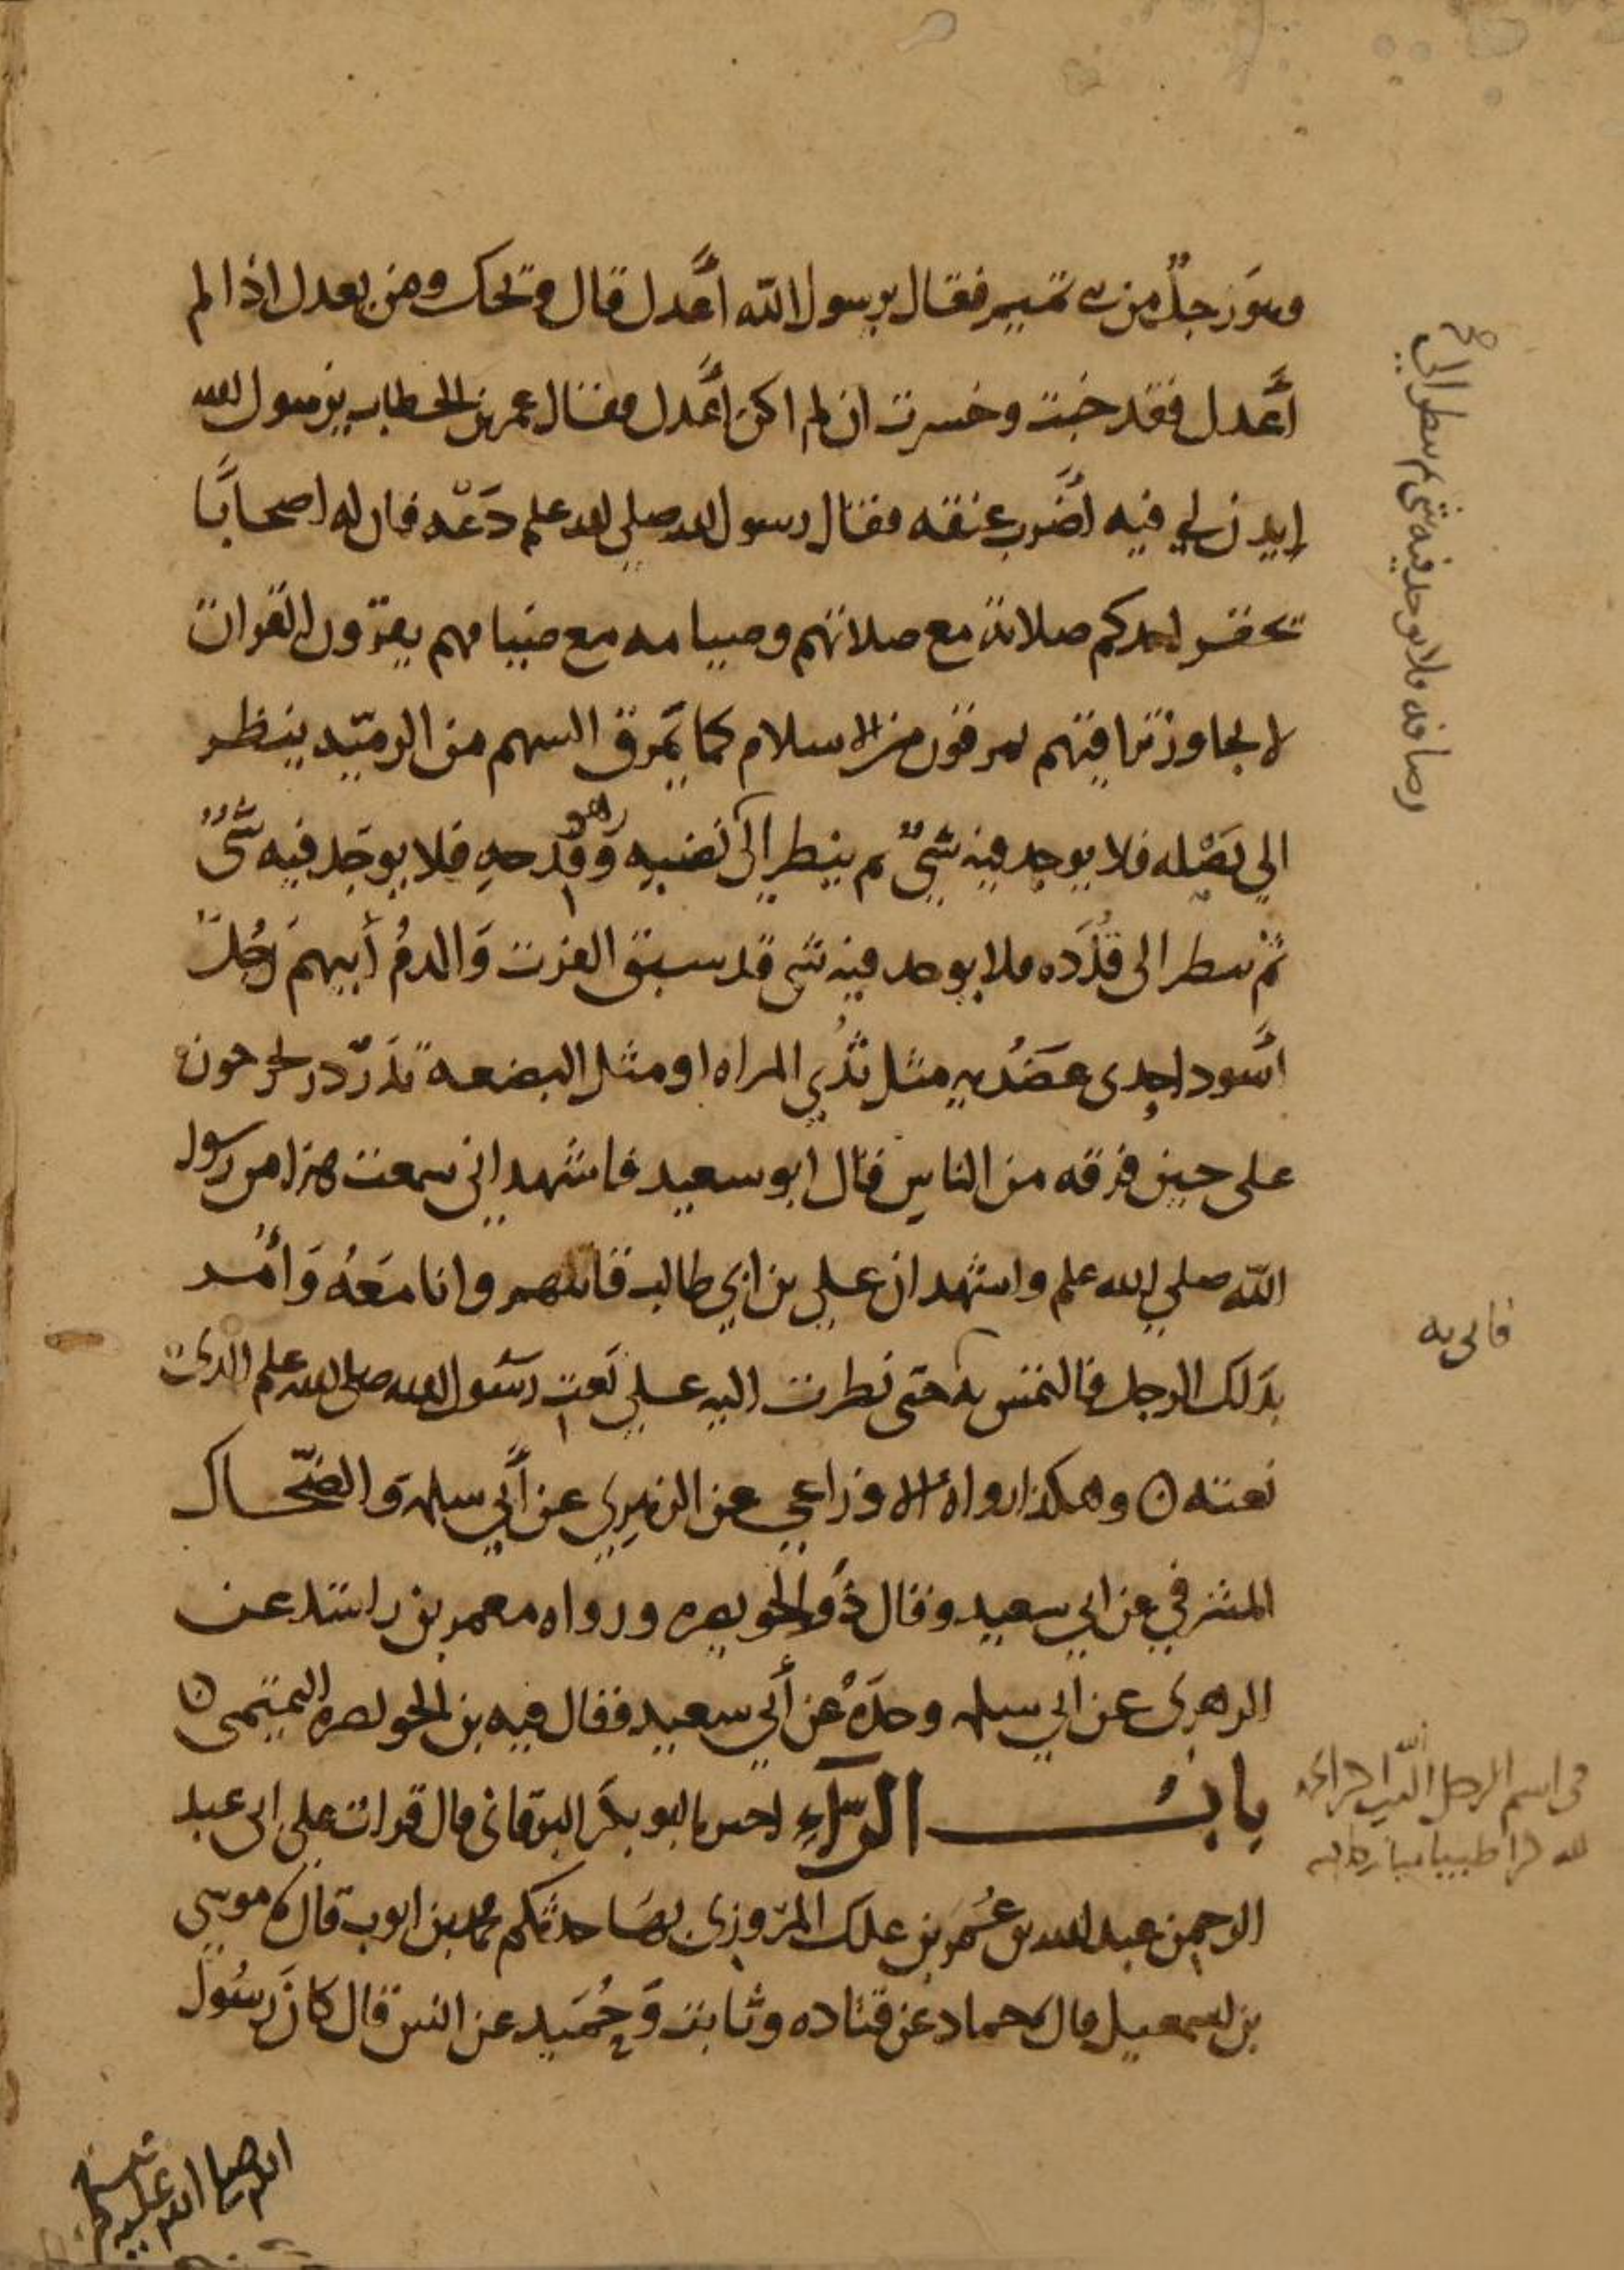 وهو رجل من بني تميم فقال يرسول الله اعدل قال ويحك ومن يعدل اذا لم
أعدل فقد خبت وخسرت ان لم اكن أعدل فقال عمر بن الخطاب يرسول الله
إيذن لي فيه أضرب عنقه فقال رسول الله صلى الله علم دعه فان له اصحابا
يحقر احدكم صلاته مع صلاتهم وصيامه مع صيامهم يقرؤون القران
لا يجاوز تراقيهم يمرقون من الاسلام كما يمرق السهم من الرميه ينظر
الي نصله فلا يوجد فيه شئ ثم ينظر إلى نضيه وهو قدحه فلا يوجد فيه شئ
ثم ينظر الى قذذه فلا يوجد فيه شي قد سبق الفرث والدم أيتهم رجل
أسود احدى عضديه مثل ثدي المراه او مثل البضعه تدردر يخرجون
على حين فرقه من الناس قال ابو سعيد فاشهد اني سمعت هذا من رسول
الله صلي الله علم واشهد ان علي بن ابي طالب قاتلهم وانا معه وأمر
بذلك الرجل فالتمس به حتى نظرت اليه علي نعت رسول الله صلى الله علم الذي
نعته ه وهكذا رواه الاوزاعي عن الزهري عن أبي سلمه والضحاك
المشرقي عن ابي سعيد وقال ذو الخويصره ورواه معمر بن راشد عن
الزهرى عن ابي سلمه وحده عن أبي سعيد فقال فيه بن الخويصره التميمى ه
باب الراء اخبرنا ابو بكر البرقانى قال قرات على ابى عبد
الرحمن عبد الله بن عمر بن علك المروزى بها حدثكم محمد بن ايوب قال ثنا موسى
بن اسمعيل قال ثنا حماد عن قتاده وثابت وحميد عن انس قال كان رسول
الله صلى الله عليه
ثم ينظر الى
رصافه فلا يوجد فيه شي
فاتي به
في اسم الرجل
لله حمدا طيبا مباركا فيه